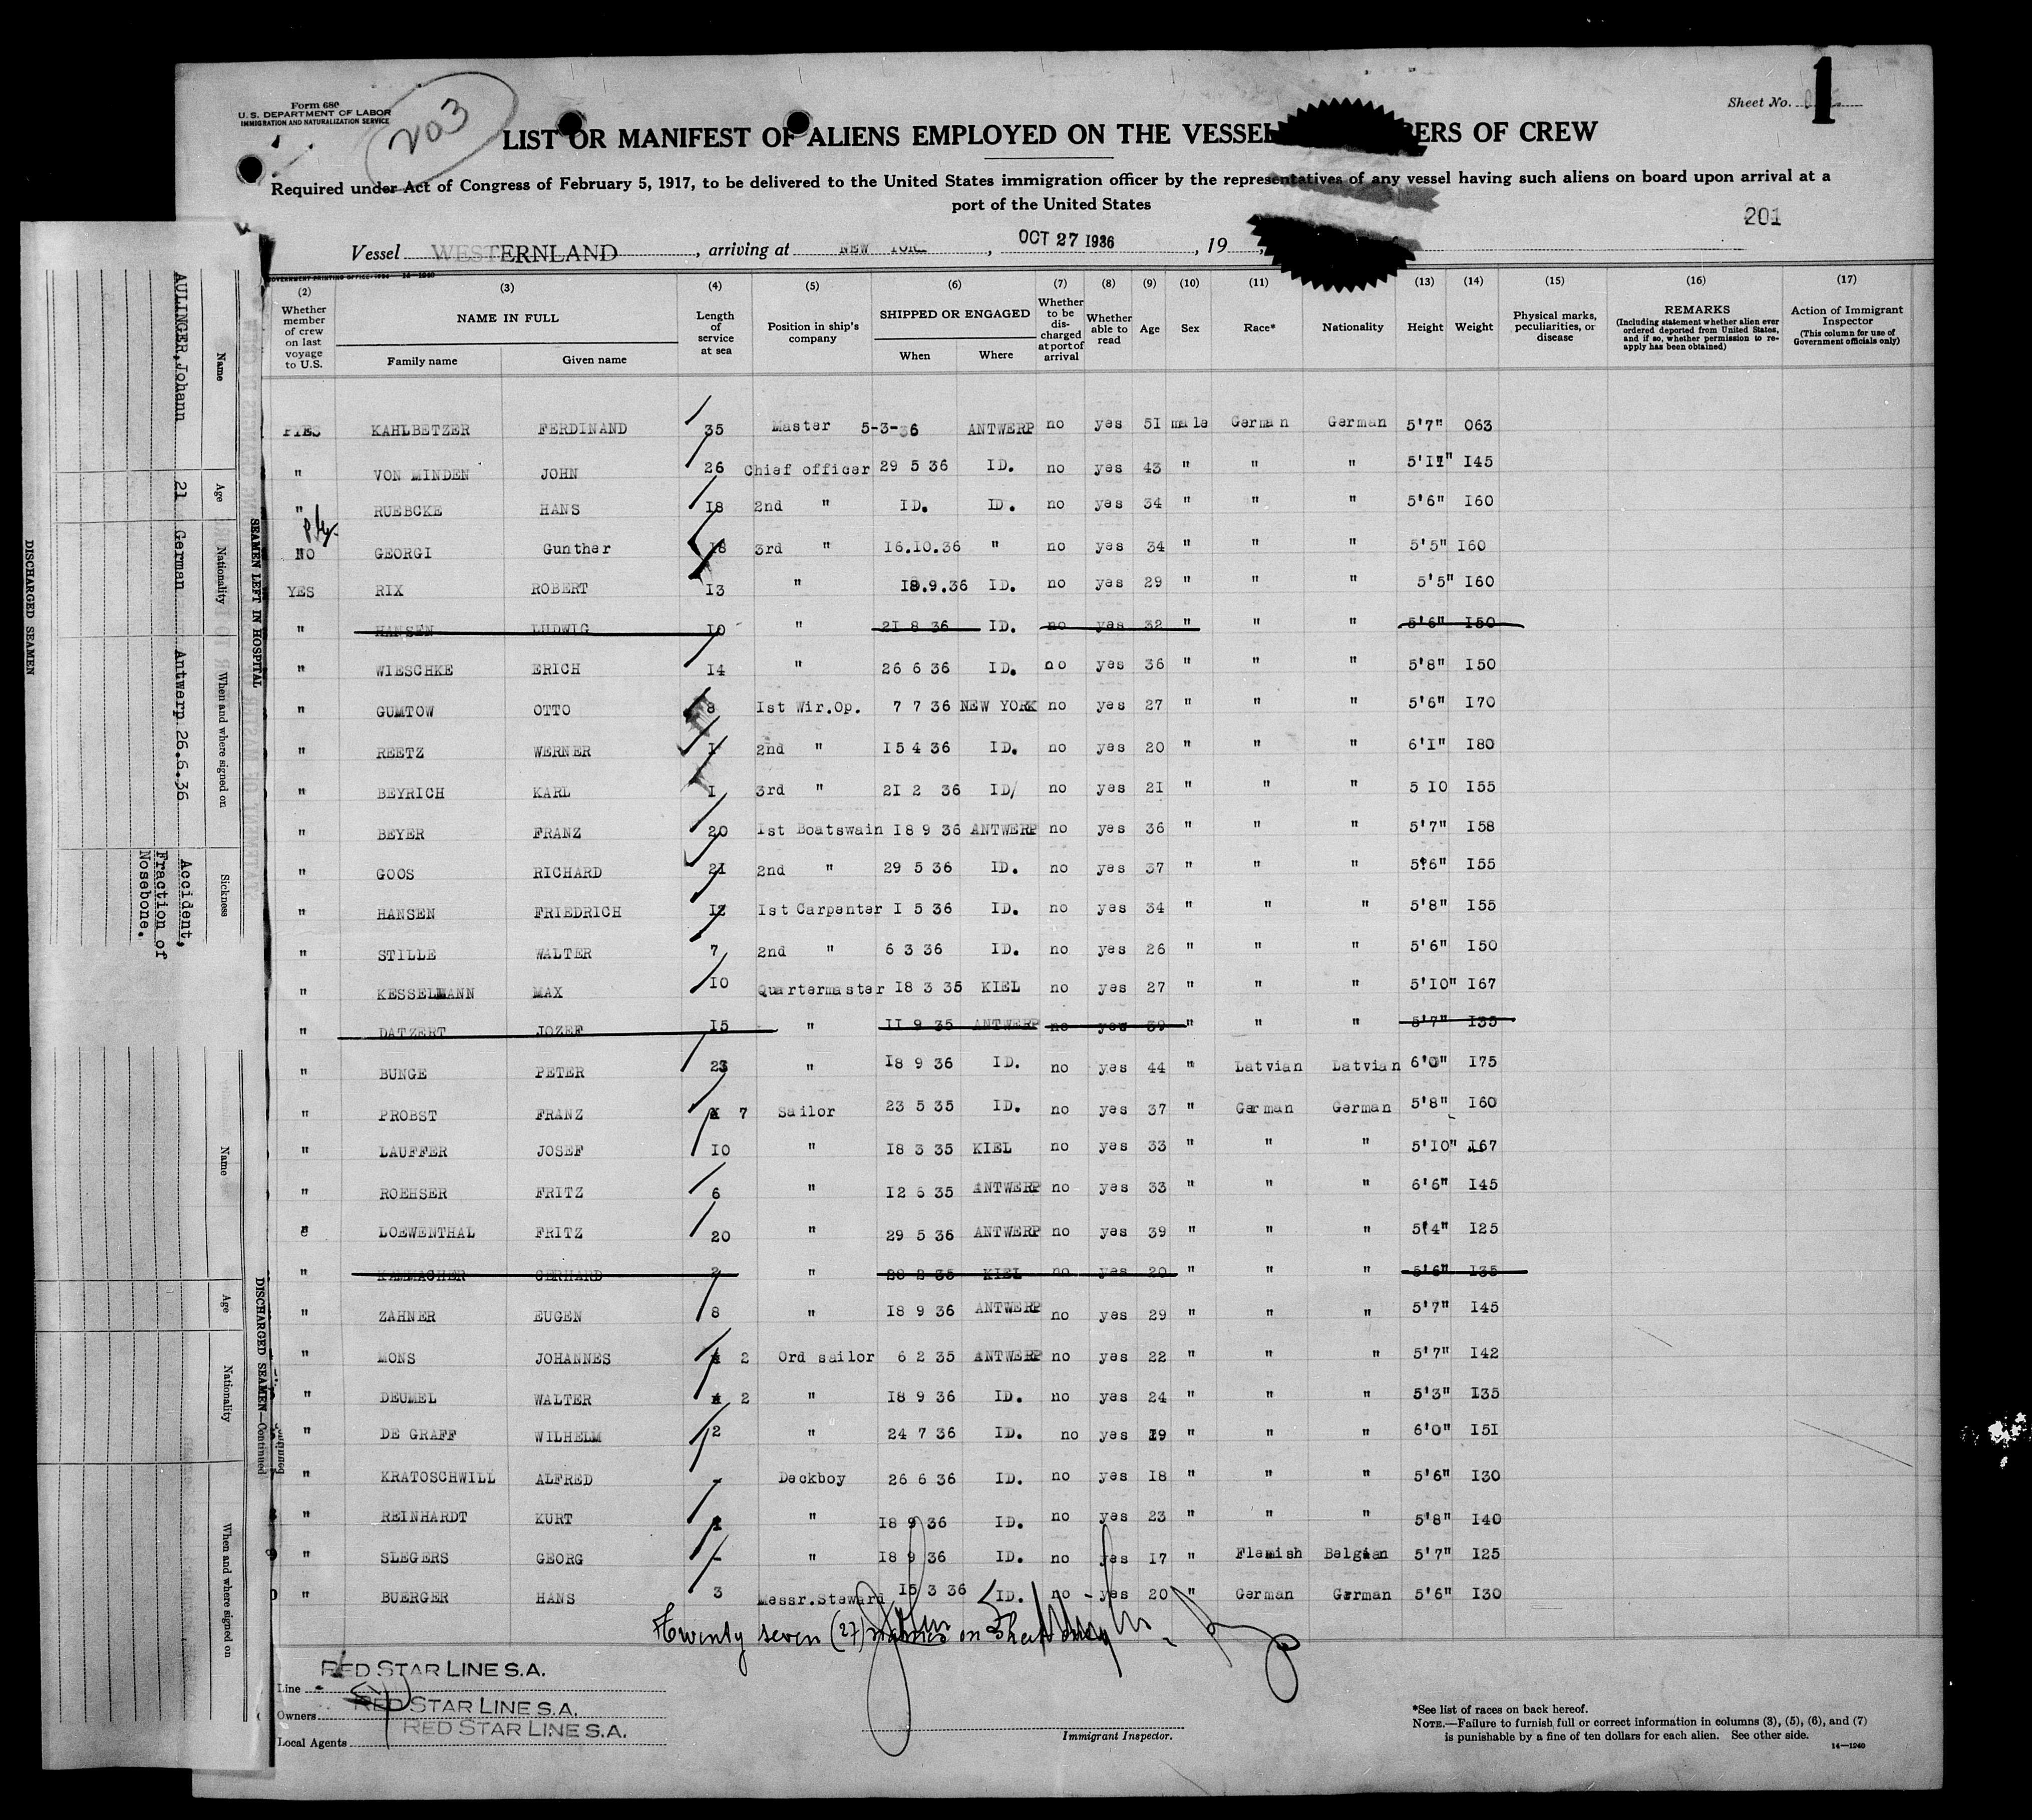 Form 680
U.S. DEPARTMENT OF LABOR
IMMIGRATION AND NATURALIZATION SERVICE
203
1
Sheet No.
LIST OR MANIFEST OF ALIENS EMPLOYED ON THE VESSEL ERS OF CREW
Required under Act of Congress of February 5, 1917, to be delivered to the United States immigration officer by the representatives of any vessel having such aliens on board upon arrival at a
port of the United States
201
Vessel WESTERNLAND, arriving at NEW YORK, OCT 27 1936, 19
(2) Whether member of crew on last voyage to U.S.
(3) NAME IN FULL
Family name Given name
(4) Length of service at sea
(5) Position in ship's company
(6) SHIPPED OR ENGAGED
When Where
(7) Whether to be discharged at port of arrival
(8) Whether able to read
(9) Age
(10) Sex
(11) Race*
Nationality
(13) Height
(14) Weight
(15) Physical marks, peculiarities, or disease
(16) REMARKS
(Including statement whether alien ever ordered deported from United States, and if so, whether permission to reapply has been obtained)
(17) Action of Immigrant Inspector
(This column for use of Government officials only)
KAHLBETZER FERDINAND 35 Master 5-3-36 ANTWERP no yes 51 male German German 5'7" 063
" VON MINDEN JOHN 26 Chief officer 29 5 36 ID. no yes 43 " " " I45
" RUEBCKE HANS I8 2nd " ID. ID. no yes 34 " " " 5'6" I60
NO GEORGI Gunther I8 3rd " I6.I0.36 " no yes 34 " " " 5'5" I60
YES RIX ROBERT I3 " I8.9.36 ID. no yes 29 " " " 5'5" I60
" HANSEN LUDWIG I0 " 2I 8 36 ID. no yes 32 " " " 5'6" I50
" WIESCHKE ERICH I4 " 26 6 36 ID. no yes 36 " " " 5'8" I50
" GUMTOW OTTO 8 Ist Wir.Op. 7 7 36 NEW YORK no yes 27 " " " 5'6" I70
" REETZ WERNER I 2nd " I5 4 36 ID. no yes 20 " " " 6'I" I80
" BEYRICH KARL I 3rd " 2I 2 36 ID/ no yes 2I " " " 5 I0 I55
" BEYER FRANZ 20 Ist Boatswain I8 9 36 ANTWERP no yes 36 " " " 5'7" I58
" GOOS RICHARD 21 2nd " 29 5 36 ID. no yes 37 " " " 5'6" I55
" HANSEN FRIEDRICH I2 Ist Carpenter I 5 36 ID. no yes 34 " " " 5'8" I55
" STILLE WALTER 7 2nd " 6 3 36 ID. no yes 26 " " " 5'6" I50
" KESSELMANN MAX I0 Quartermaster I8 3 35 KIEL no yes 27 " " " 5'I0" I67
" DATZERT JOZEF I5 " II 9 35 ANTWERP no yes 39 " " " 5'7" I35
" BUNGE PETER 23 " I8 9 36 ID. no yes 44 " Latvian Latvian 6'0" I75
" PROBST FRANZ 7 Sailor 23 5 35 ID. no yes 37 " German German 5'8" I60
" LAUFFER JOSEF I0 " I8 3 35 KIEL no yes 33 " " " 5'I0" I67
" ROEHSER FRITZ 6 " I2 6 35 ANTWERP no yes 33 " " " 6'6" I45
LOEWENTHAL FRITZ 20 " 29 5 36 ANTWERP no yes 39 " " " 5'4" I25
" KAMMACHER GERHARD 2 " 28 2 35 KIEL no yes 20 " " " 5'6" I35
" ZAHNER EUGEN 8 " I8 9 36 ANTWERP no yes 29 " " " 5'7" I45
" MONS JOHANNES 2 Ord sailor 6 2 35 ANTWERP no yes 22 " " " 5'7" I42
" DEUMEL WALTER 2 " I8 9 36 ID. no yes 24 " " " 5'3" I35
" DE GRAFF WILHELM 2 " 24 7 36 ID. no yes I9 " " " 6'0" I5I
" KRATOSCHWILL ALFRED - Deckboy 26 6 36 ID. no yes I8 " " " 5'6" I30
" REINHARDT KURT " I8 9 36 ID. no yes 23 " " " 5'8" I40
" SLEGERS GEORG - " I8 9 36 ID. no yes I7 " Flemish Belgian 5'7" I25
" BUERGER HANS 3 Messr.Steward I5 3 36 ID. no yes 20 " German German 5'6" I30
Twenty seven (27) names on Sheet one
RED STAR LINE S.A.
Line
RED STAR LINE S.A.
Owners
RED STAR LINE S.A.
Local Agents
Immigrant Inspector.
*See list of races on back hereof.
NOTE.—Failure to furnish full or correct information in columns (3), (5), (6), and (7)
is punishable by a fine of ten dollars for each alien. See other side.
14—1240
DISCHARGED SEAMEN
SEAMEN LEFT IN HOSPITAL
Name Age Nationality When and where signed on Sickness
AULINGER,Johann 21 German Antwerp 26.6.36 Accident,
Fraction of
Nosebone.
DISCHARGED SEAMEN—Continued
Name Age Nationality When and where signed on